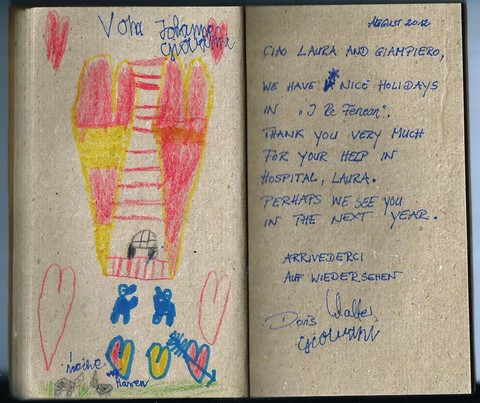 Von Johanna
Giovanni
meine
Hasen
AUGUST 2012
CIAO LAURA AND GIAMPIERO,
WE HAVE NICE HOLIDAYS
IN „I Re Fenean“.
THANK YOU VERY MUCH
FOR YOUR HELP IN
HOSPITAL, LAURA.
PERHAPS WE SEE YOU
IN THE NEXT YEAR.
ARRIVEDERCI
AUF WIEDERSEHEN
Doris Walter
Giovanni